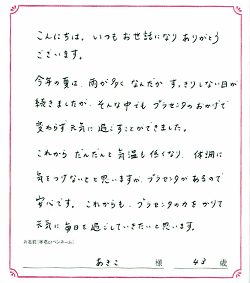 こんにちは。いつもお世話になりありがとう
ございます。
今年の夏は、雨が多くなんだかすっきりしない日が
続きましたが、そんな中でもプラセンタのおかげで
変わらず元気に過ごすことができました。
これからだんだんと気温も低くなり、体調に
気をつけないとと思いますが、プラセンタがあるので
安心です。これからも、プラセンタの力をかりて
元気に毎日を過ごしていきたいと思います。
お名前(本名orペンネーム)
あきこ 様 43 歳